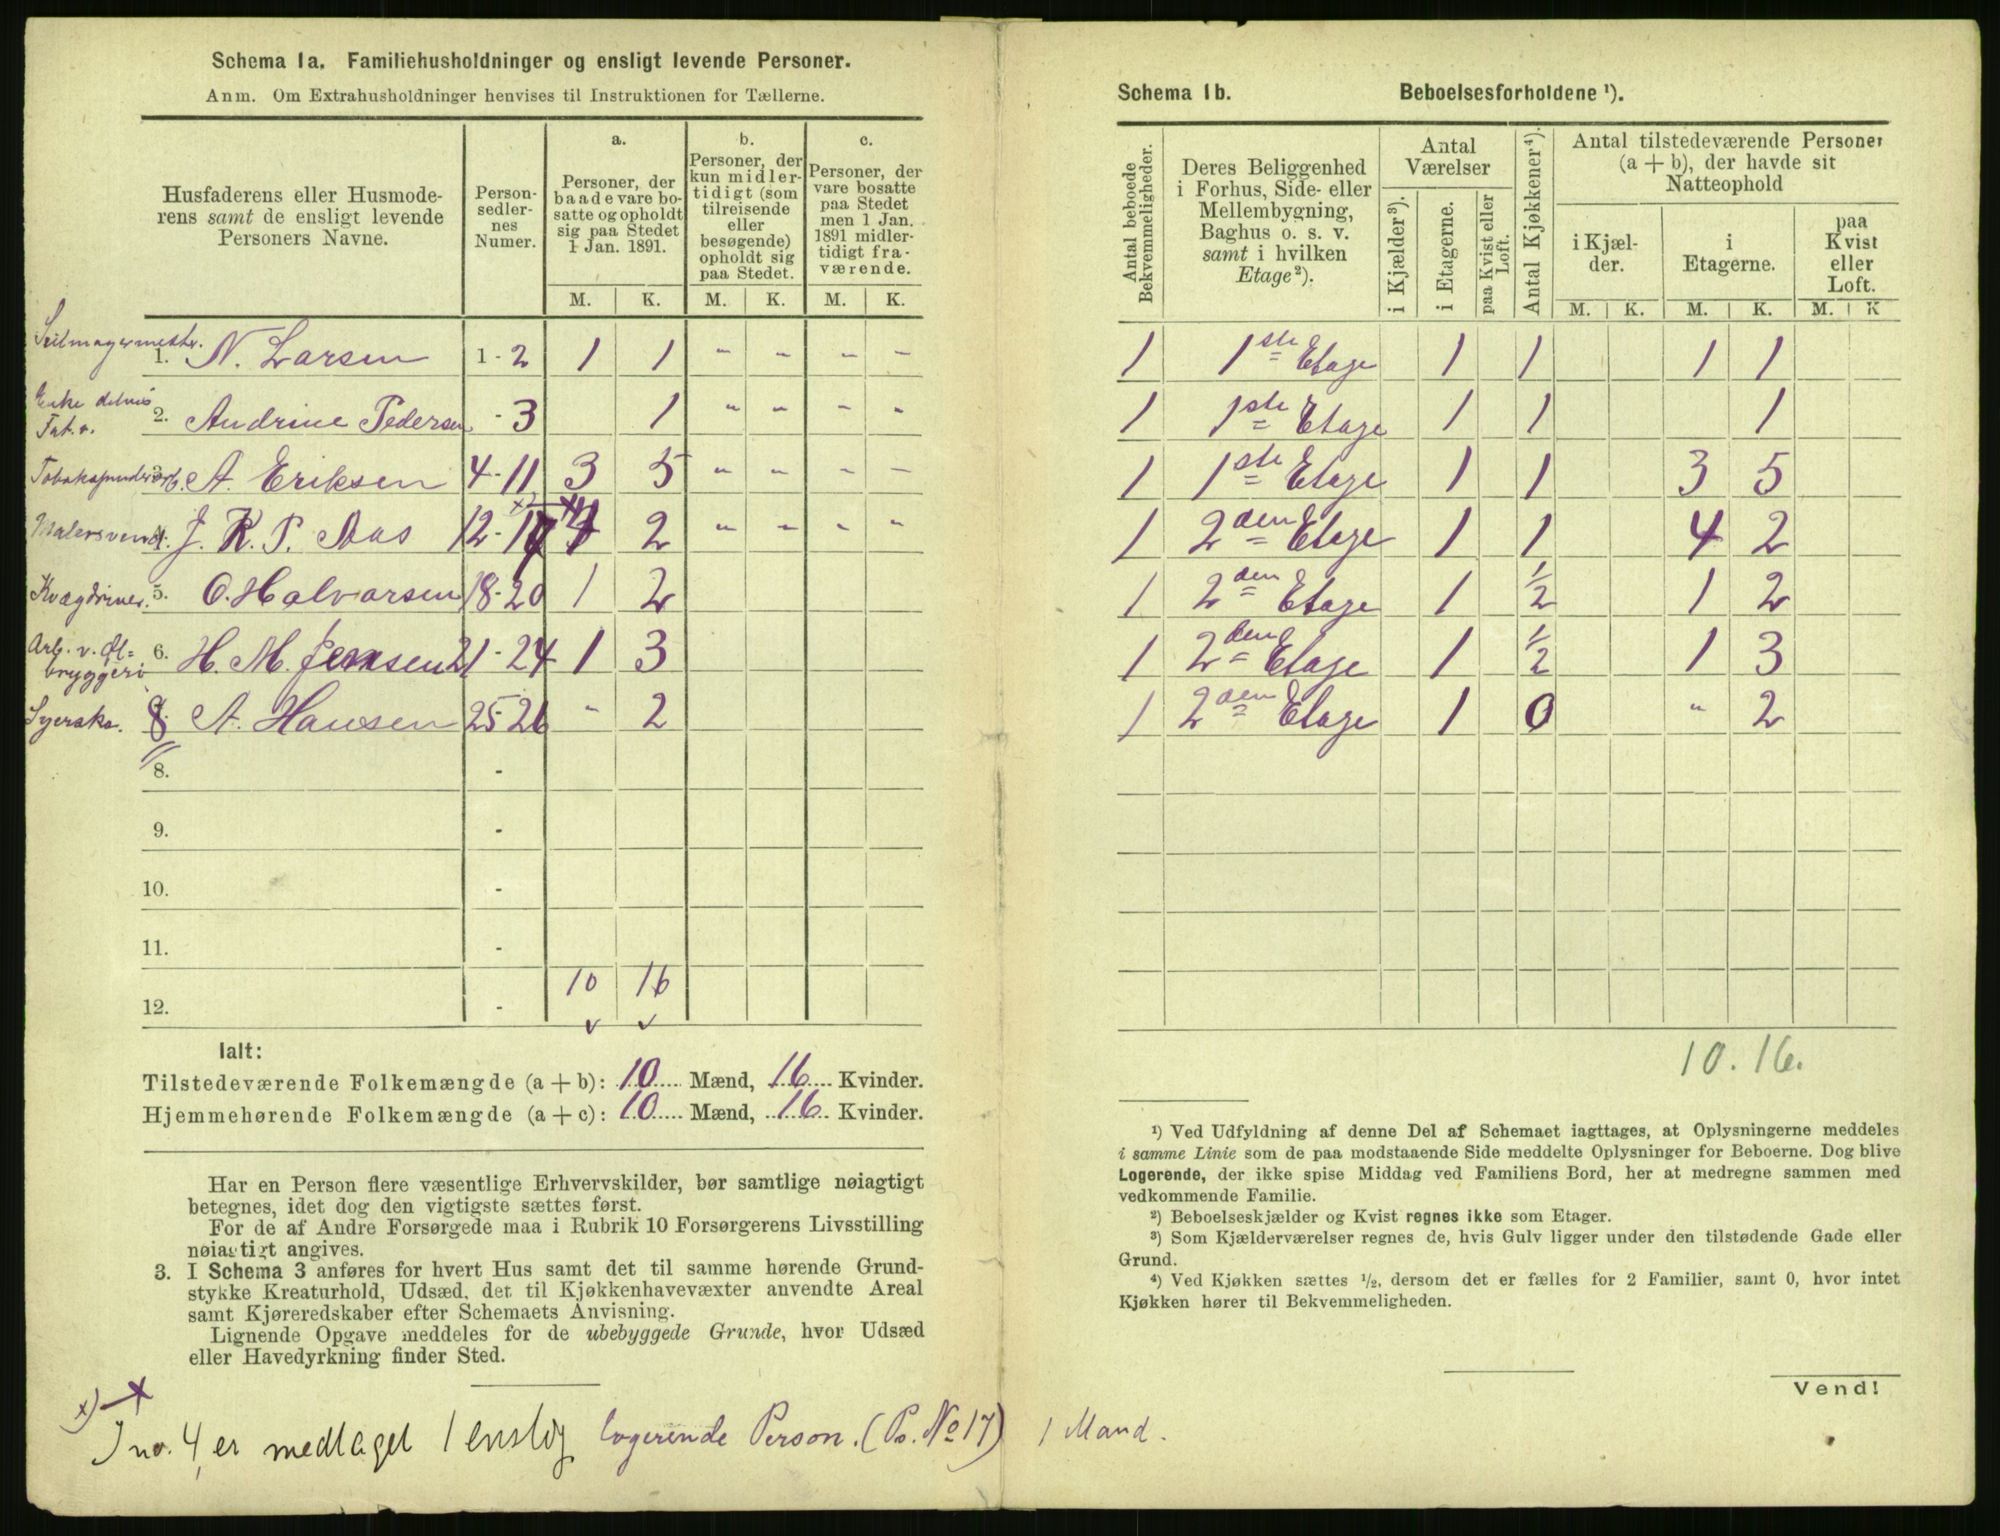 Schema 1a. Familiehusholdninger og ensligt levende Personer.
Anm. Om Extrahusholdninger henvises til Instruktionen for Tællerne.
Husfaderens eller Husmoderens samt de ensligt levende Personers Navne.
Personsedlernes Numer.
a.
Personer, der baade vare bosatte og opholdt sig paa Stedet 1 Jan. 1891.
b.
Personer, der kun midlertidigt (som tilreisende eller besøgende) opholdt sig paa Stedet.
c.
Personer, der vare bosatte paa Stedet men 1 Jan. 1891 midlertidigt fraværende.
M. K. M. K. M. K.
Seilmagermestr. 1. N. Larsen 1-2 1 1 " " " "
Enke delvis Fat.v. 2. Andrine Pedersen - 3 1 " " " "
3. A. Eriksen 4-11 3 5 " " " "
Malersvend 4. J. K. P. Aas 12-17 4 2 " " " "
Kvægdriver. 5. O. Halvorsen 18-20 1 2
Arb. v. Ølbryggeri 6. H. M. Jensen 21-24 1 3
Syerske. 8 A. Hansen 25-26 " 2
8. -
9. -
10. -
11. -
10 16
12. -
Ialt:
Tilstedeværende Folkemængde (a + b): 10 Mænd, 16 Kvinder.
Hjemmehørende Folkemængde (a + c): 10 Mænd, 16 Kvinder.
Har en Person flere væsentlige Erhvervskilder, bør samtlige nøiagtigt
betegnes, idet dog den vigtigste sættes først.
For de af Andre Forsørgede maa i Rubrik 10 Forsørgerens Livsstilling
nøiagtigt angives.
3. I Schema 3 anføres for hvert Hus samt det til samme hørende Grund-
stykke Kreaturhold, Udsæd, det til Kjøkkenhavevæxter anvendte Areal
samt Kjøreredskaber efter Schemaets Anvisning.
Lignende Opgave meddeles for de ubebyggede Grunde, hvor Udsæd
eller Havedyrkning finder Sted.
x) I no. 4, er medtaget 1 enslig logerende Person. (Ps. No 17) 1 Mand.
Schema 1b. Beboelsesforholdene ¹).
Antal beboede Bekvemmeligheder.
Deres Beliggenhed i Forhus, Side- eller Mellembygning, Baghus o. s. v. samt i hvilken Etage²).
Antal Værelser
i Kjælder³).
i Etagerne.
paa Kvist eller Loft.
Antal Kjøkkener⁴).
Antal tilstedeværende Personer (a + b), der havde sit Natteophold
i Kjælder.
i Etagerne.
paa Kvist eller Loft.
M. K. M. K. M. K
1 1ste Etage 1 1 1 1
1 1ste Etage 1 1 1
1 1ste Etage 1 1 3 5
1 2den Etage 1 1 4 2
1 2den Etage 1 1/2 1 2
1 2den Etage 1 1/2 1 3
1 2den Etage 1 0 " 2
10. 16.
¹) Ved Udfyldning af denne Del af Schemaet iagttages, at Oplysningerne meddeles
i samme Linie som de paa modstaaende Side meddelte Oplysninger for Beboerne. Dog blive
Logerende, der ikke spise Middag ved Familiens Bord, her at medregne sammen med
vedkommende Familie.
²) Beboelseskjælder og Kvist regnes ikke som Etager.
³) Som Kjælderværelser regnes de, hvis Gulv ligger under den tilstødende Gade eller
Grund.
⁴) Ved Kjøkken sættes ½, dersom det er fælles for 2 Familier, samt 0, hvor intet
Kjøkken hører til Bekvemmeligheden.
Vend!